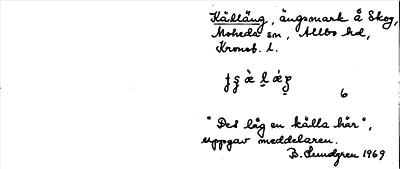 Källäng, ängsmark å Skog,
Moheda sn, Allbo hd,
Kronob. l.
6
"Det låg en källa här",
uppgav meddelaren.
B. Sundgren 1969